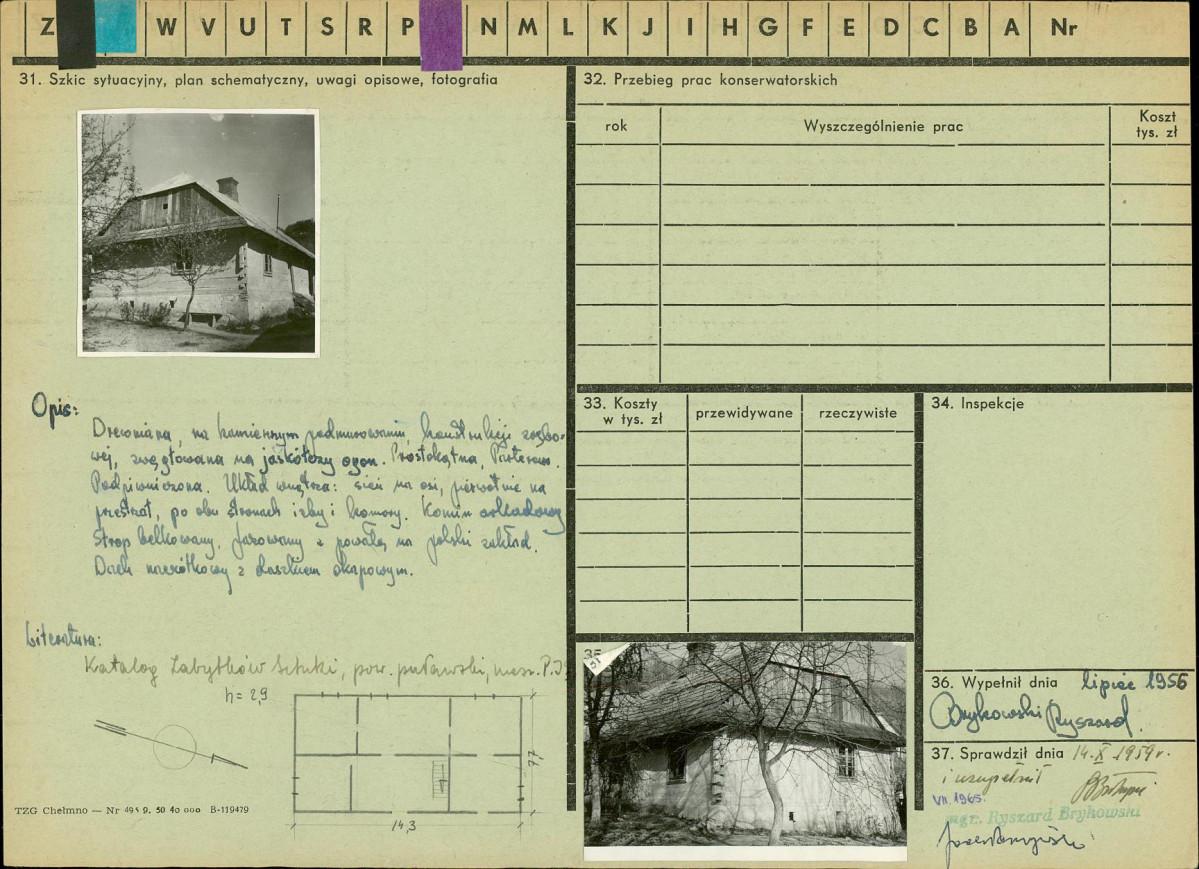 Z W V U T S R P N M L K J I H G F E D C B A Nr
31. Szkic sytuacyjny, plan schematyczny, uwagi opisowe, fotografia
Opis:
Drewniana, na kamiennym podmurowaniu, konstrukcji zrębo-
wej, zwęgłowana na jaskółczy ogon. Prostokątna, Parterowa.
Podpiwniczona. Układ wnętrza: sień na osi, pierwotnie na
przestrzał, po obu stronach izby i komory. Komin arkadowy
Strop belkowany, fazowany z powałą na polski zakład.
Dach naczółkowy z daszkiem okapowym.
Literatura:
Katalog Zabytków Sztuki, pow. puławski, masz. P.I.S
h = 2,9
7,7
14,3
TZG Chełmno — Nr 50 40 000 B-119479
32. Przebieg prac konserwatorskich
rok
Wyszczególnienie prac
Koszt
tys. zł
33. Koszty
w tys. zł
przewidywane
rzeczywiste
34. Inspekcje
35
31
36. Wypełnił dnia lipiec 1956
Brykowski Ryszard.
37. Sprawdził dnia 14.X.1959r.
i uzupełnił
VII. 1965.
mgr. Ryszard Brykowski